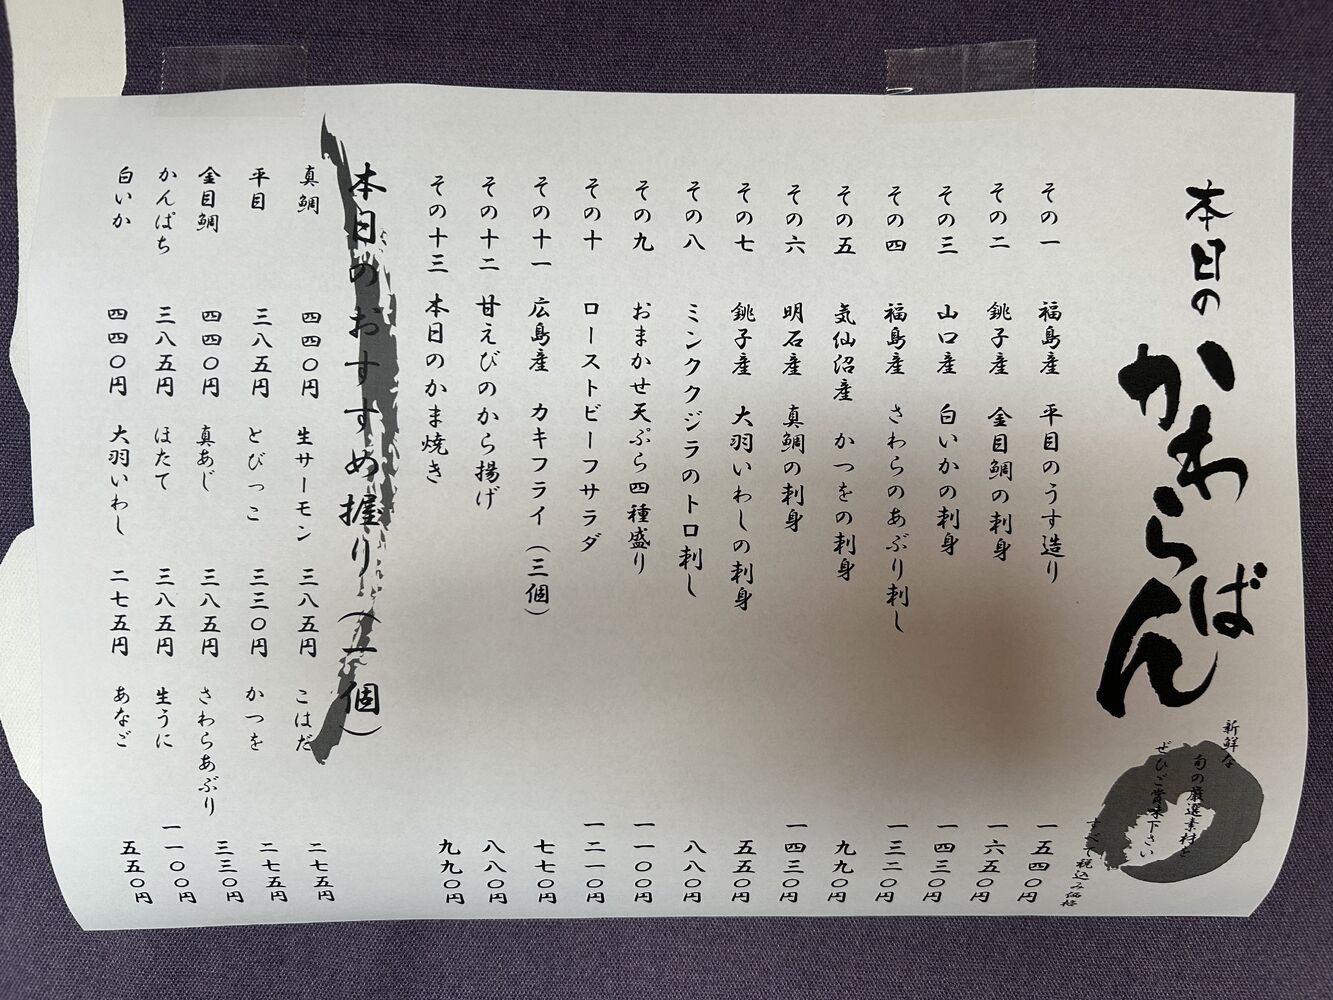 本日の かわらばん
新鮮な
旬の厳選素材を
ぜひご賞味下さい
すべて税込み価格
その一 福島産 平目のうす造り 一五四〇円
その二 銚子産 金目鯛の刺身 一六五〇円
その三 山口産 白いかの刺身 一四三〇円
その四 福島産 さわらのあぶり刺し 一三二〇円
その五 気仙沼産 かつをの刺身 九九〇円
その六 明石産 真鯛の刺身 一四三〇円
その七 銚子産 大羽いわしの刺身 五五〇円
その八 ミンククジラのトロ刺し 八八〇円
その九 おまかせ天ぷら四種盛り 一一〇〇円
その十 ローストビーフサラダ 一二一〇円
その十一 広島産 カキフライ(三個) 七七〇円
その十二 甘えびのから揚げ 八八〇円
その十三 本日のかま焼き 九九〇円
本日のおすすめ握り(一個)
真鯛 四四〇円 生サーモン 三八五円 こはだ 二七五円
平目 三八五円 とびっこ 三三〇円 かつを 二七五円
金目鯛 四四〇円 真あじ 三八五円 さわらあぶり 三三〇円
かんぱち 三八五円 ほたて 三八五円 生うに 一一〇〇円
白いか 四四〇円 大羽いわし 二七五円 あなご 五五〇円